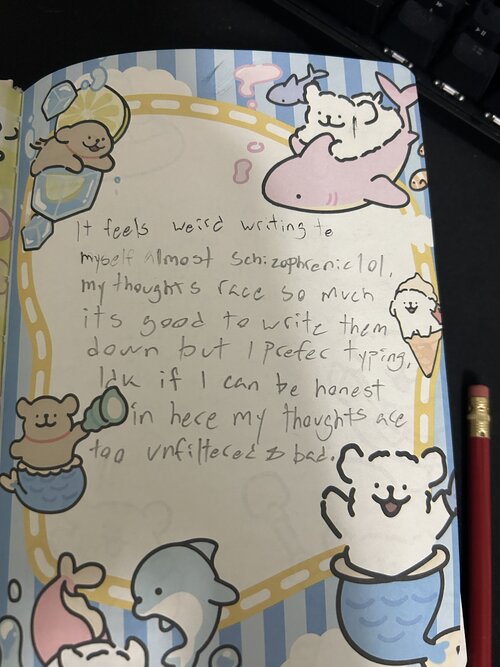 It feels weird writing to
myself almost schizophrenic lol,
my thoughts race so much
its good to write them
down but I prefer typing,
Idk if I can be honest
in here my thoughts are
too unfiltered & bad.